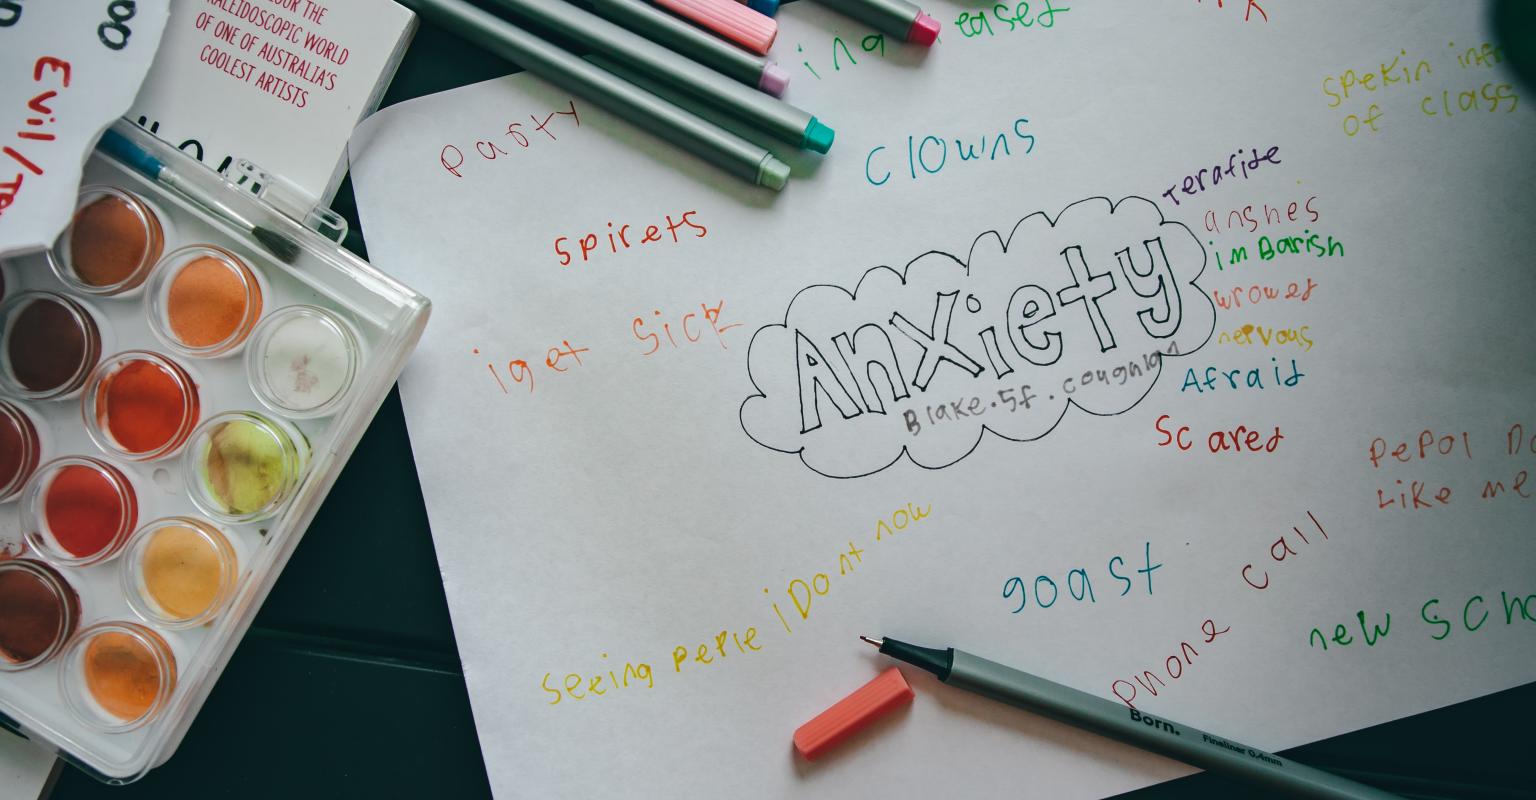 COLOUR THE
KALEIDOSCOPIC WORLD
OF ONE OF AUSTRALIA'S
COOLEST ARTISTS
Evil/
eased
spekin
of class
party
Clowns
spirets
terafide
anshes
imBarish
wrowed
nervous
Afraid
Scared
iget Sick
Anxiety
Blake.5f.coughlan
PePol
Like me
seeing peple iDont now
goast
phone call
new
Born.
Fineliner 0.4mm